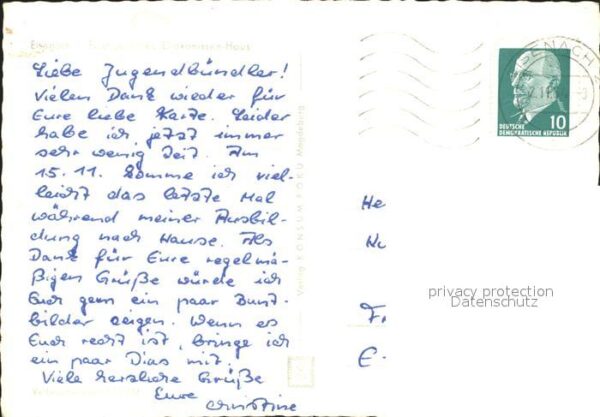 Eisenach Diakonissen-Haus
Liebe Jugendbündler!
Vielen Dank wieder für
Eure liebe Karte. Leider
habe ich jetzt immer
sehr wenig Zeit. Am
15. 11. komme ich viel-
leicht das letzte Mal
während meiner Ausbil-
dung nach Hause. Als
Dank für Eure regelmä-
ßigen Grüße würde ich
Euch gern ein paar Bunt-
bilder zeigen. Wenn es
Euch recht ist, bringe ich
ein paar Dias mit.
Viele herzliche Grüße
Eure
Christine
Verlag KONSUM FOKU Magdeburg
EISENACH
10
DEUTSCHE
DEMOKRATISCHE REPUBLIK
He
Nu
F.
E
privacy protection
Datenschutz